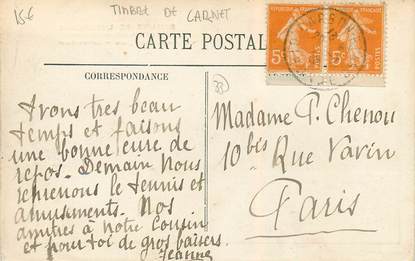 15€
TIMBRE DE CARNET
CARTE POSTALE
5c 5c
POSTES POSTES
CORRESPONDANCE
33
Avons tres beau
temps et faisons
une bonne cure de
repos. Demain nous
reprenons le tennis et
amusements. Nos
amitiés à notre cousin
et pour toi de gros baisers.
Jeanne
Madame P. Chenou
10 bis Rue Vavin
Paris